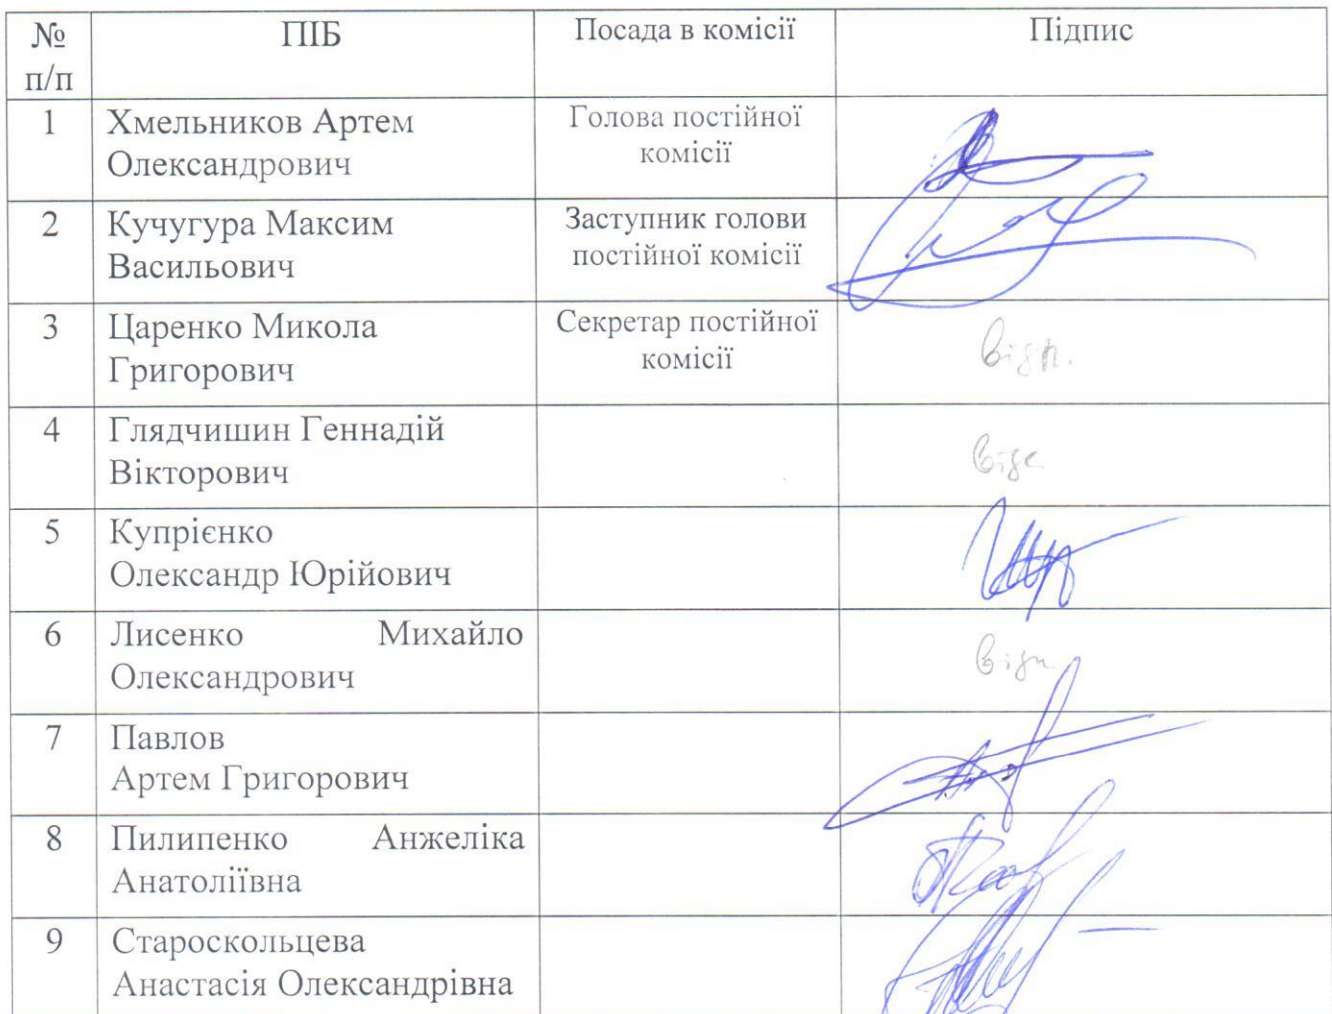 № п/п ПІБ Посада в комісії Підпис
1 Хмельников Артем Олександрович Голова постійної комісії
2 Кучугура Максим Васильович Заступник голови постійної комісії
3 Царенко Микола Григорович Секретар постійної комісії відп.
4 Глядчишин Геннадій Вікторович
5 Купрієнко Олександр Юрійович
6 Лисенко Михайло Олександрович
7 Павлов Артем Григорович
8 Пилипенко Анжеліка Анатоліївна
9 Староскольцева Анастасія Олександрівна